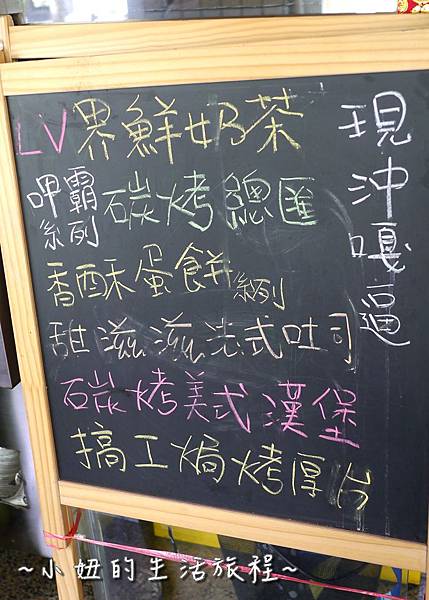 LV界鮮奶茶
呷霸系列 碳烤總匯
香酥蛋餅系列
甜滋滋法式吐司
碳烤美式漢堡
搞工焗烤厚片
現沖嘎逼
~小妞的生活旅程~